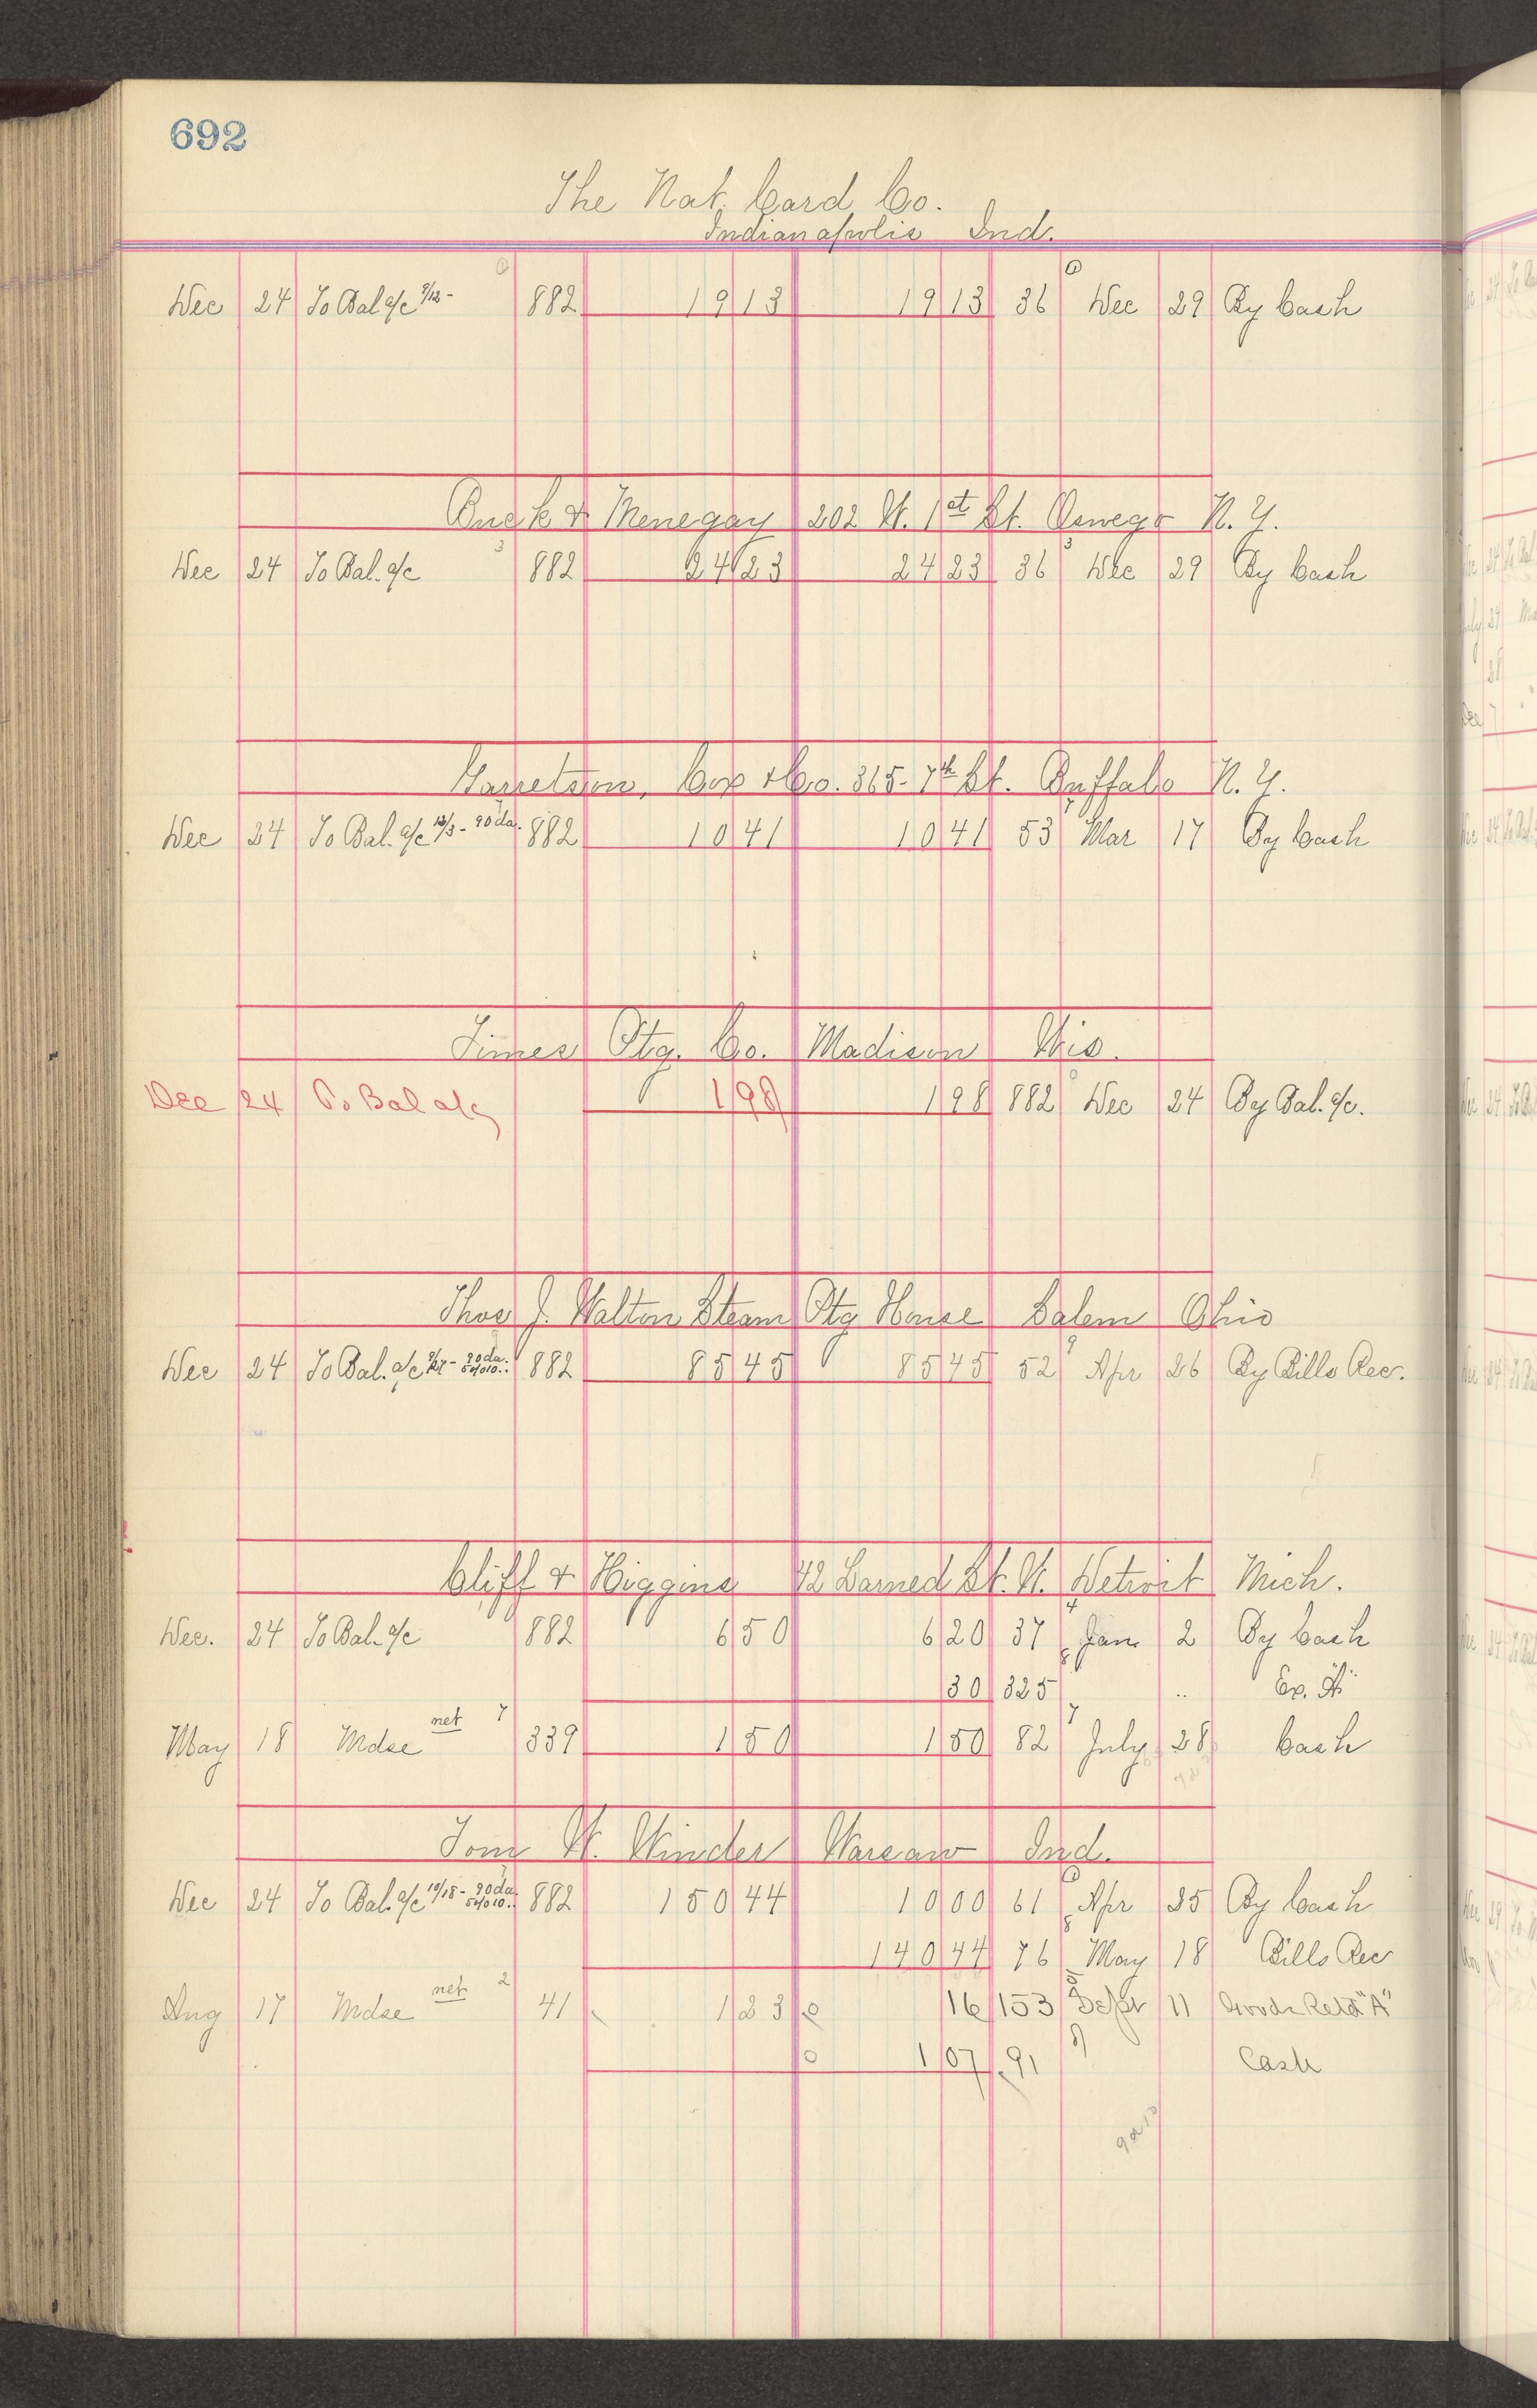 692
The Nat. Card Co.
Indianapolis Ind.
Dec 24 To Bal a/c 882 19 13 19 13 36 Dec 29 By Cash
& Menegay 202 W. 1st St. Oswego N. Y.
Dec 24 To Bal. a/c 882 24 23 24 23 36 Dec 29 By Cash
Cox & Co. St. Buffalo N. Y.
Dec 24 To Bal. a/c 882 10 41 10 41 53 Mar 17 By Cash
Times Ptg. Co. Madison Wis.
Dec 24 To Bal a/c 1 98 1 98 882 Dec 24 By Bal. a/c.
Thos J. Walton Steam Ptg House Salem Ohio
Dec 24 To Bal. a/c 882 85 45 85 45 52 Apr 26 By Bills Rec.
Cliff & Higgins Larned St. W. Detroit Mich.
Dec. 24 To Bal. a/c 882 6 50 6 20 37 Jan 2 By Cash
30 325 " Ex. "
May 18 Mdse net 7 339 1 50 1 50 82 July 28 Cash
Tom W. Winder Warsaw Ind.
Dec 24 To Bal. a/c 10/18 - 90 da. 882 150 44 10 00 61 Apr 25 By Cash
140 44 76 May 18 Bills Rec
Aug 17 Mdse net 2 41 1 23 16 153 Sept 11 Goods Retd "A"
1 07 91 Cash